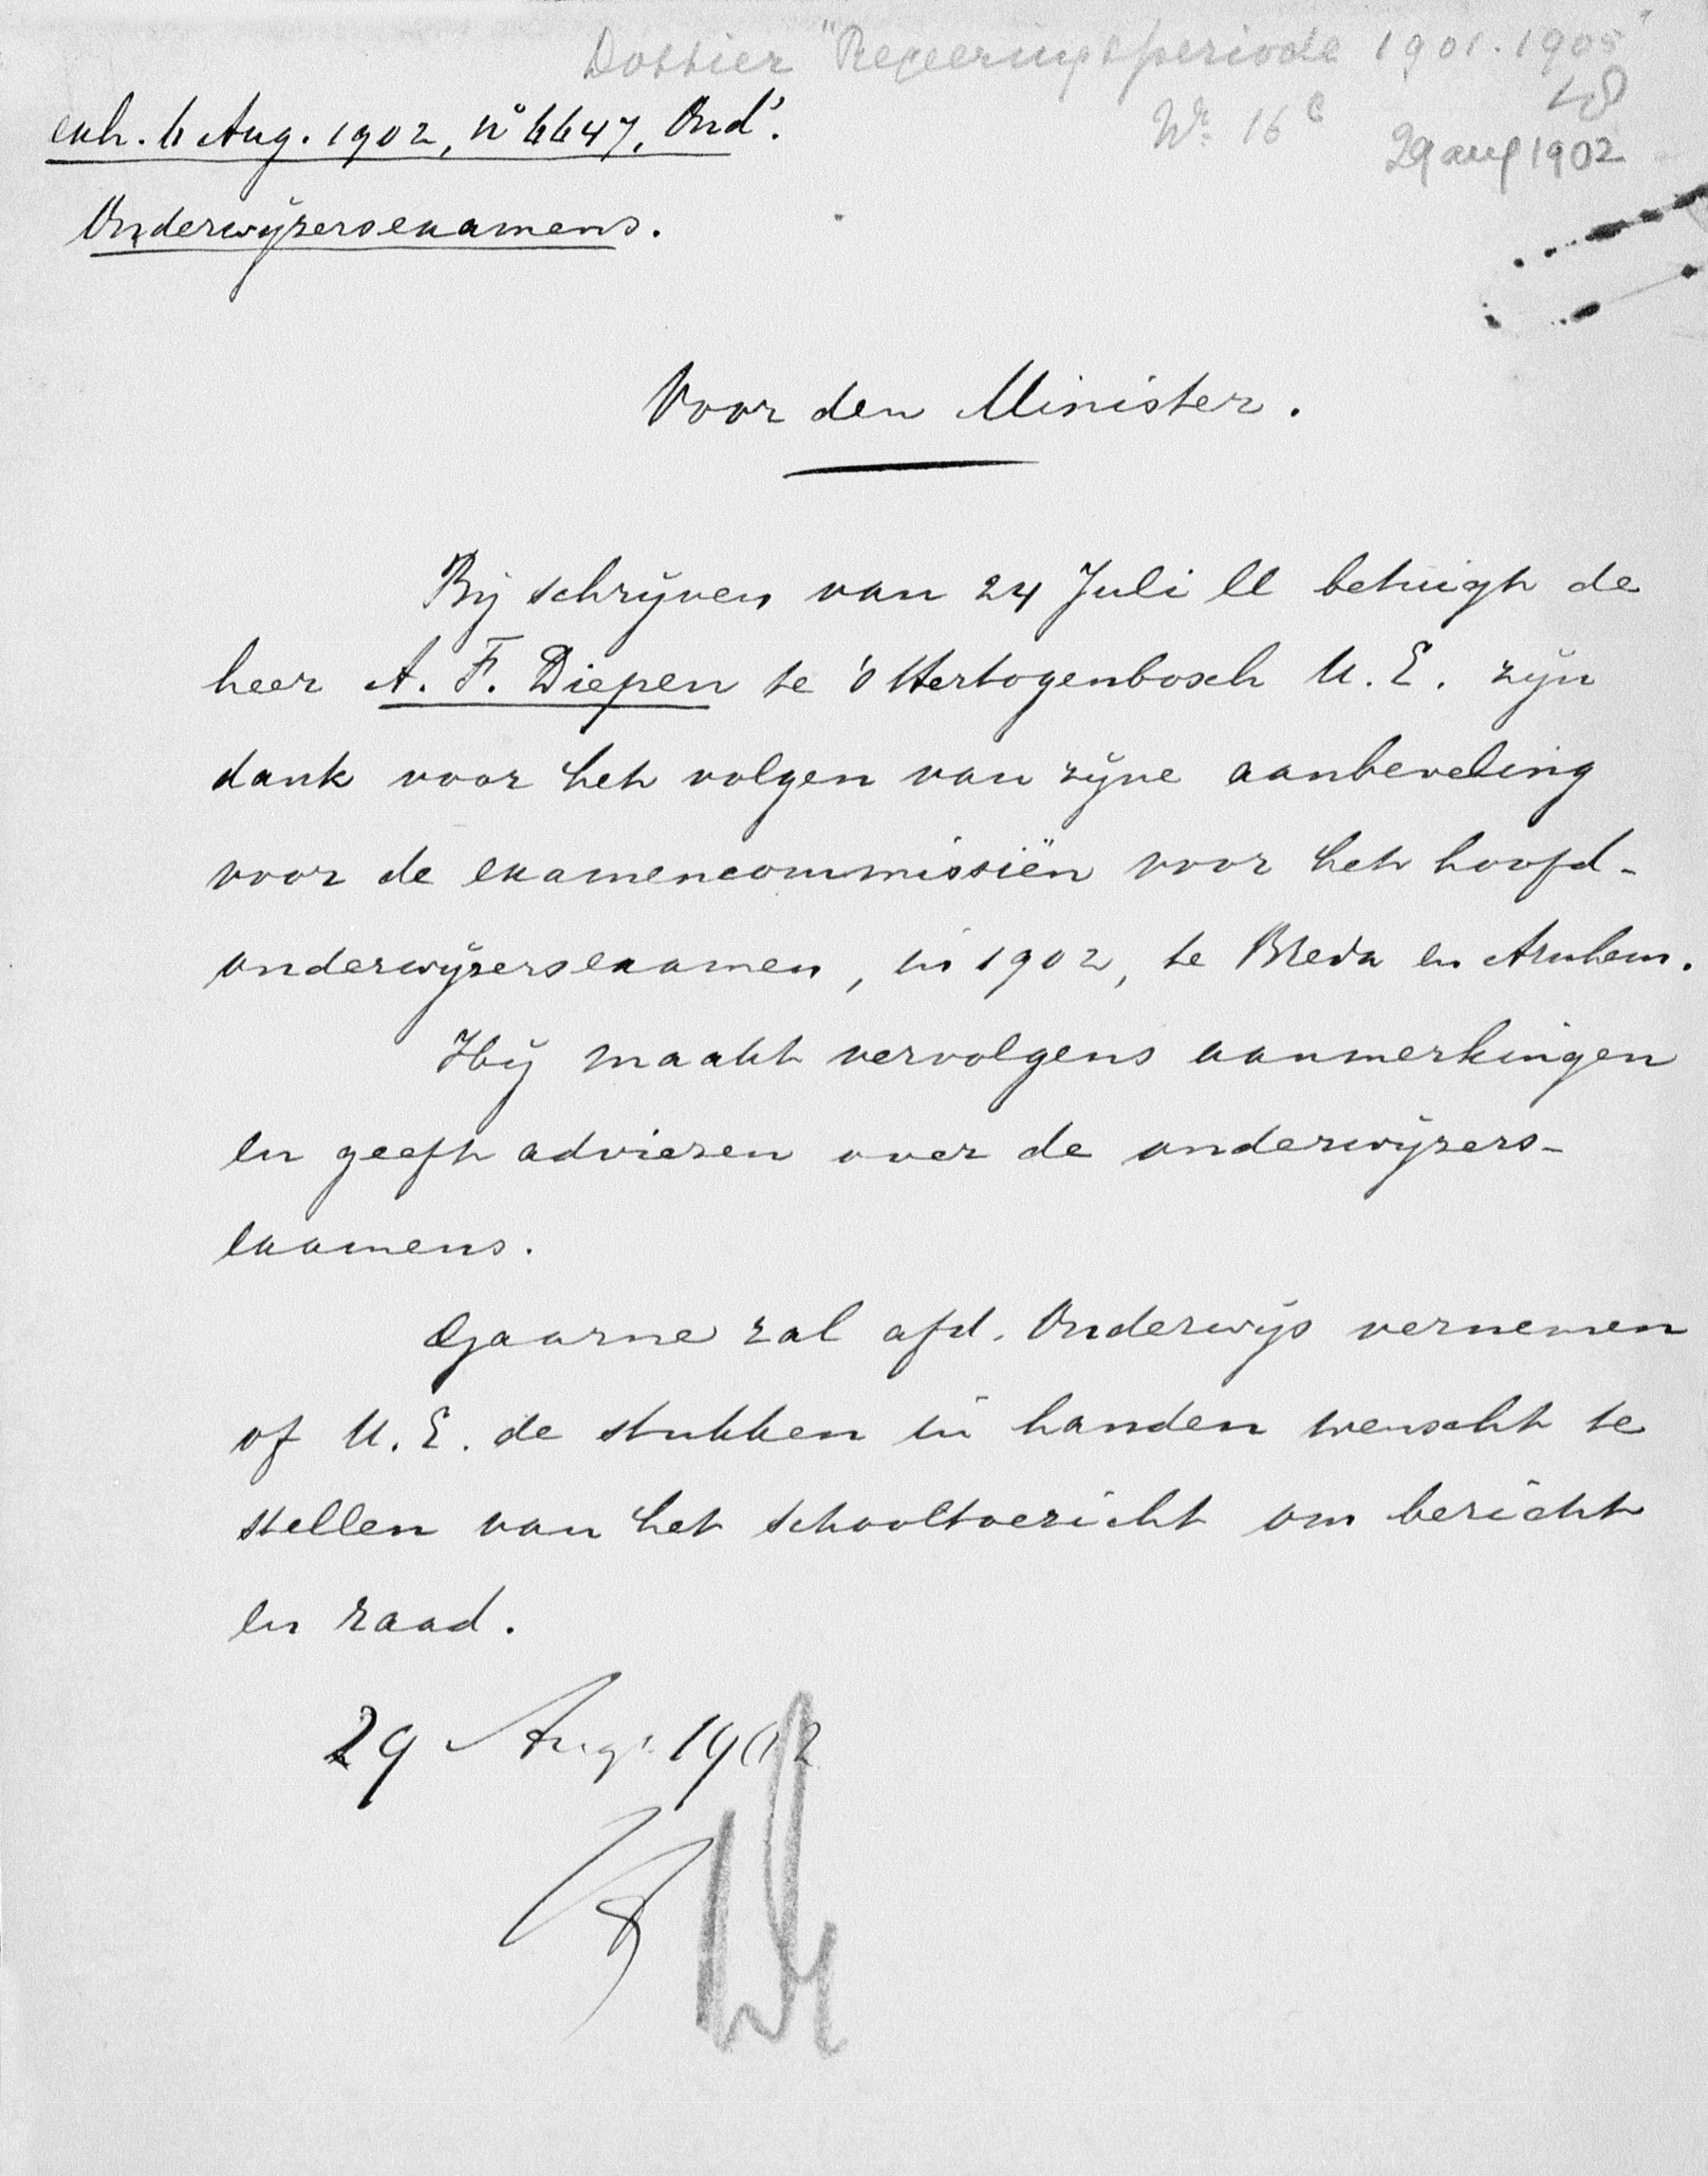 Dossier "Regeeringsperiode 1901-1905"
No 16c
29 aug 1902
exh. 6 Aug. 1902, no 6647, Ond's.
Onderwijzersexamens.
Voor den Minister.
Bij schrijven van 24 Juli ll betuigt de
heer A. F. Diepen te 's Hertogenbosch U. E. zijn
dank voor het volgen van zijne aanbeveling
voor de examencommissiën voor het hoofd-
onderwijzersexamen, in 1902, te Breda en Arnhem.
Hij maakt vervolgens aanmerkingen
en geeft adviezen over de onderwijzers-
examens.
Gaarne zal afd. Onderwijs vernemen
of U. E. de stukken in handen wenscht te
stellen van het schooltoezicht om bericht
en raad.
29 Aug. 1902